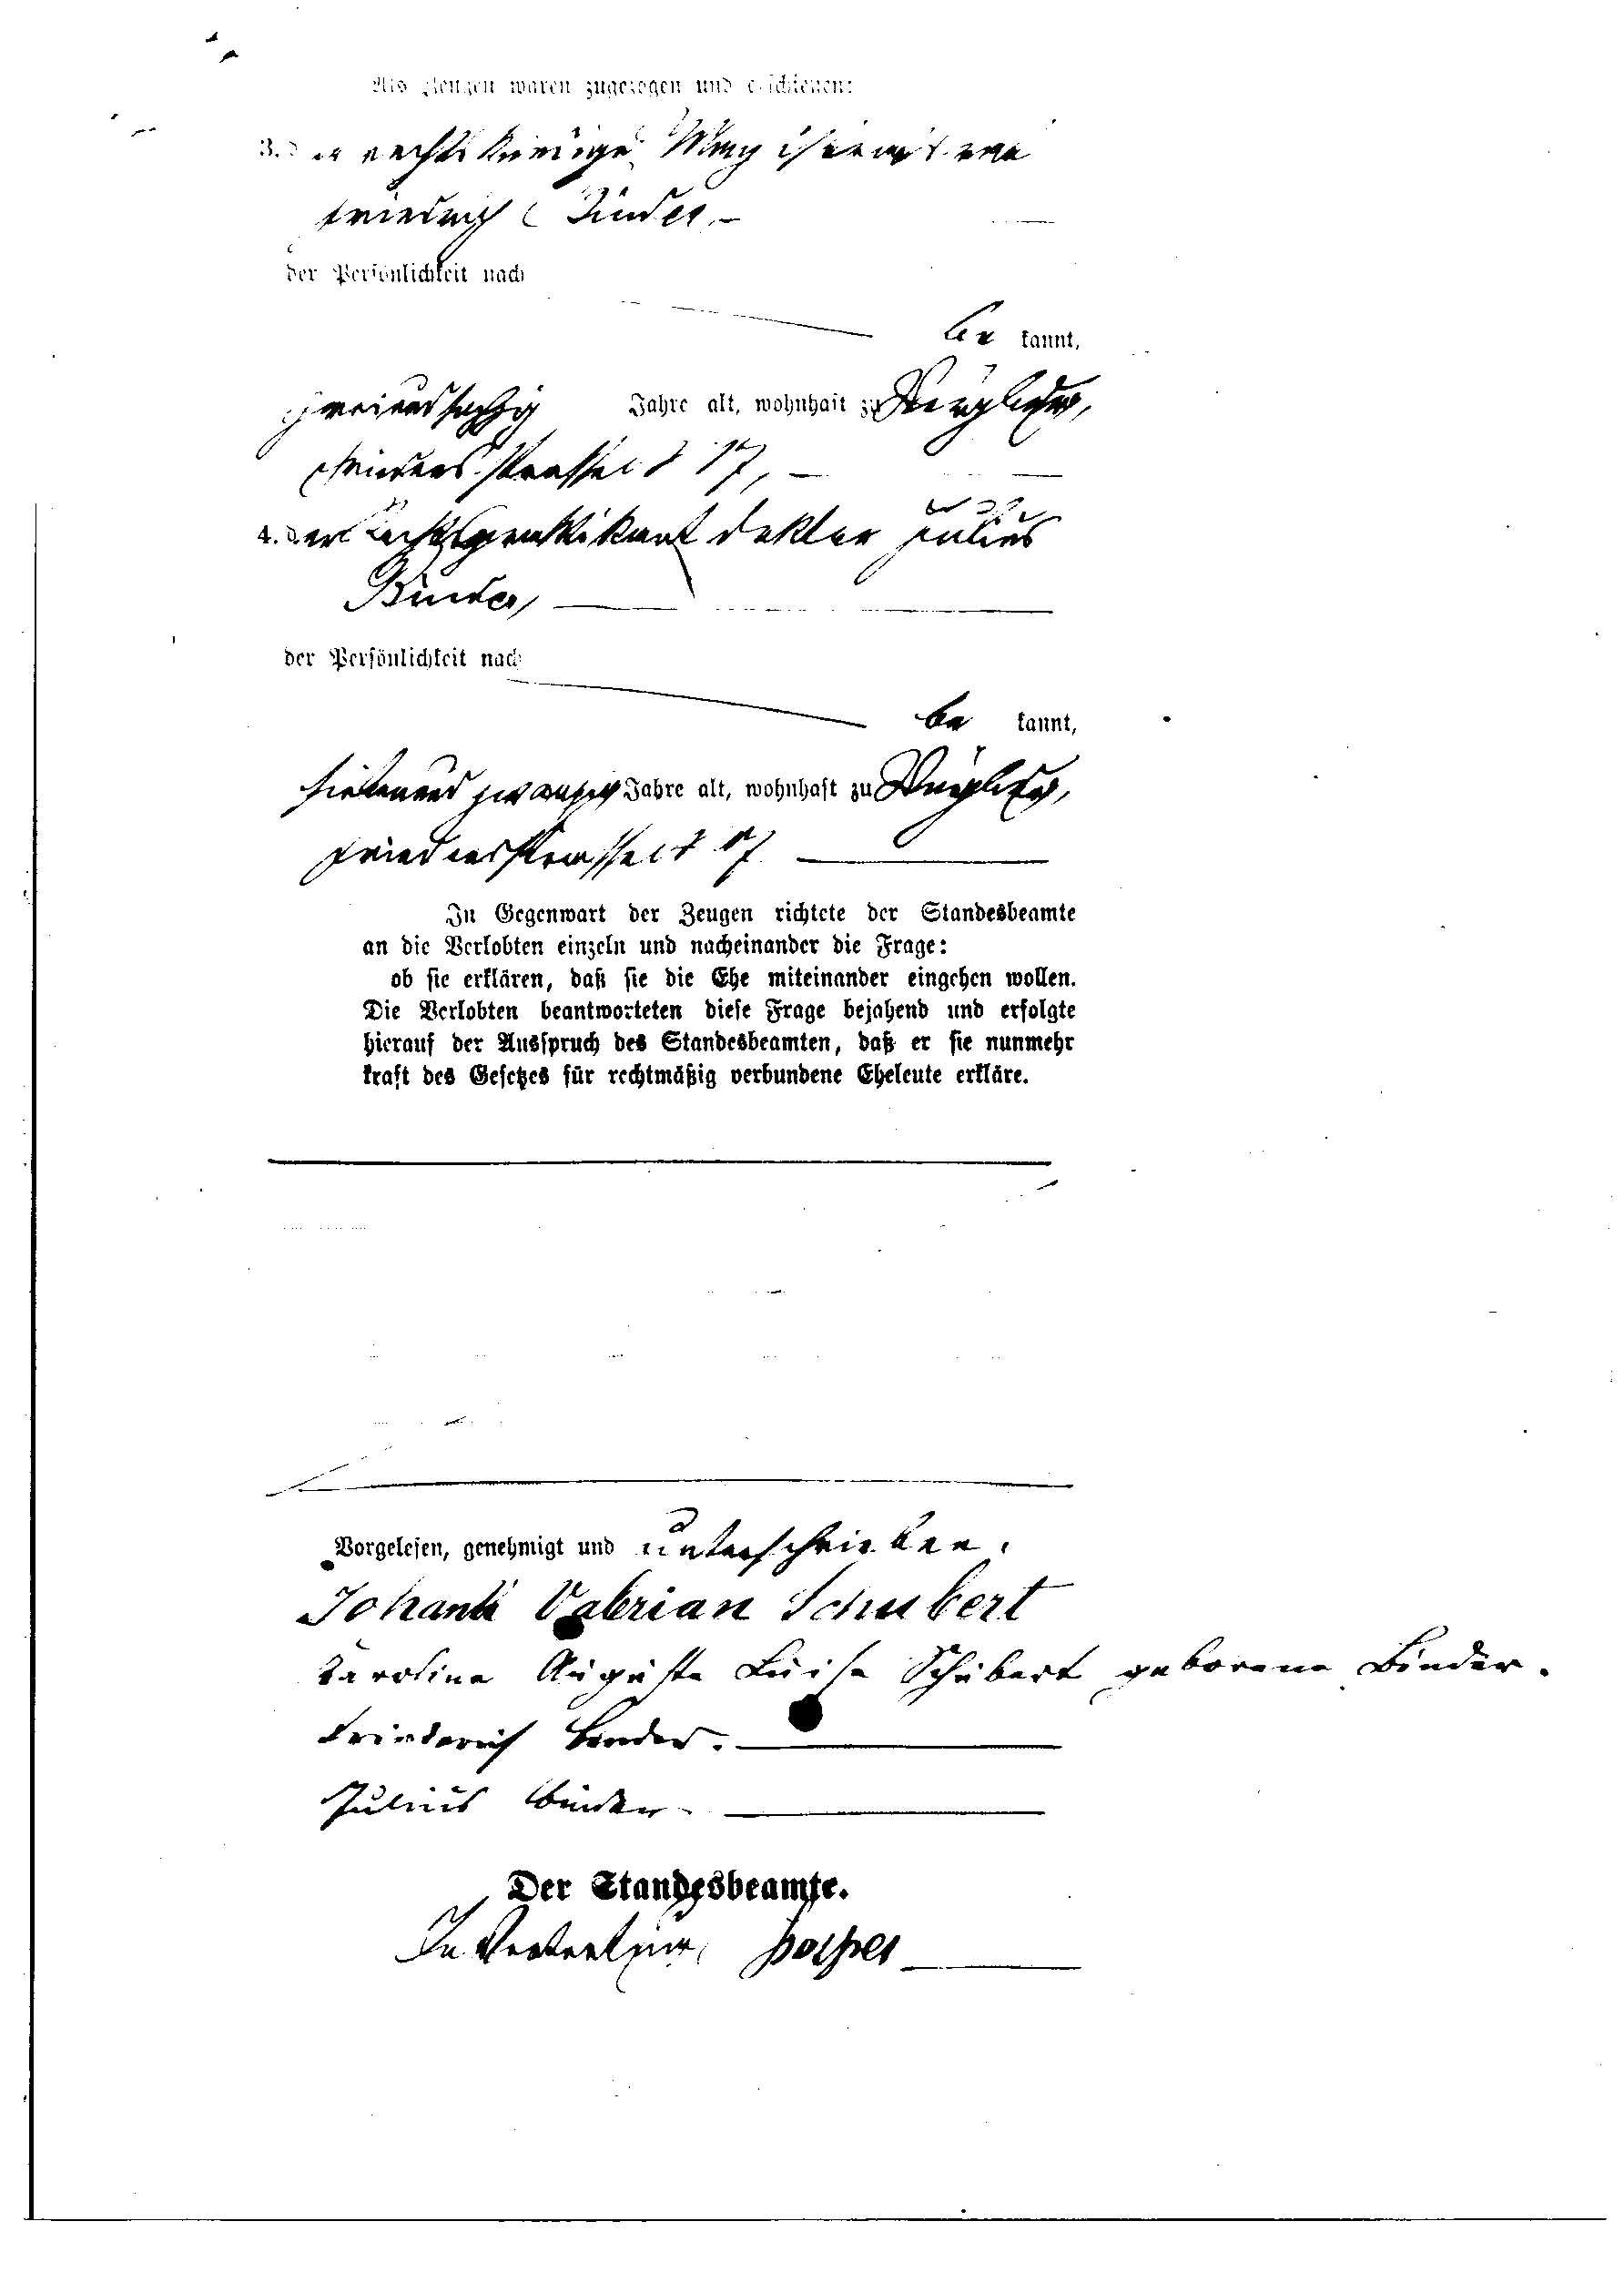 Als Zeugen waren zugezogen und erschienen:
3. der rechtskundige Magistratsrat
Friedrich Binder, –
der Persönlichkeit nach
be kannt,
zweiundsechzig Jahre alt, wohnhaft zu
17, –
4. der Rechtspraktikant Doktor Julius
Binder,
der Persönlichkeit nach
be kannt,
siebenundzwanzig Jahre alt, wohnhaft zu
17
In Gegenwart der Zeugen richtete der Standesbeamte
an die Verlobten einzeln und nacheinander die Frage:
ob sie erklären, daß sie die Ehe miteinander eingehen wollen.
Die Verlobten beantworteten diese Frage bejahend und erfolgte
hierauf der Ausspruch des Standesbeamten, daß er sie nunmehr
kraft des Gesetzes für rechtmäßig verbundene Eheleute erkläre.
Vorgelesen, genehmigt und unterschrieben.
Johann Valerian Schubert
Karolina Augusta Luise Schubert geborene Binder.
Friederich Binder.
Julius Binder.
Der Standesbeamte.
In Vertretung: